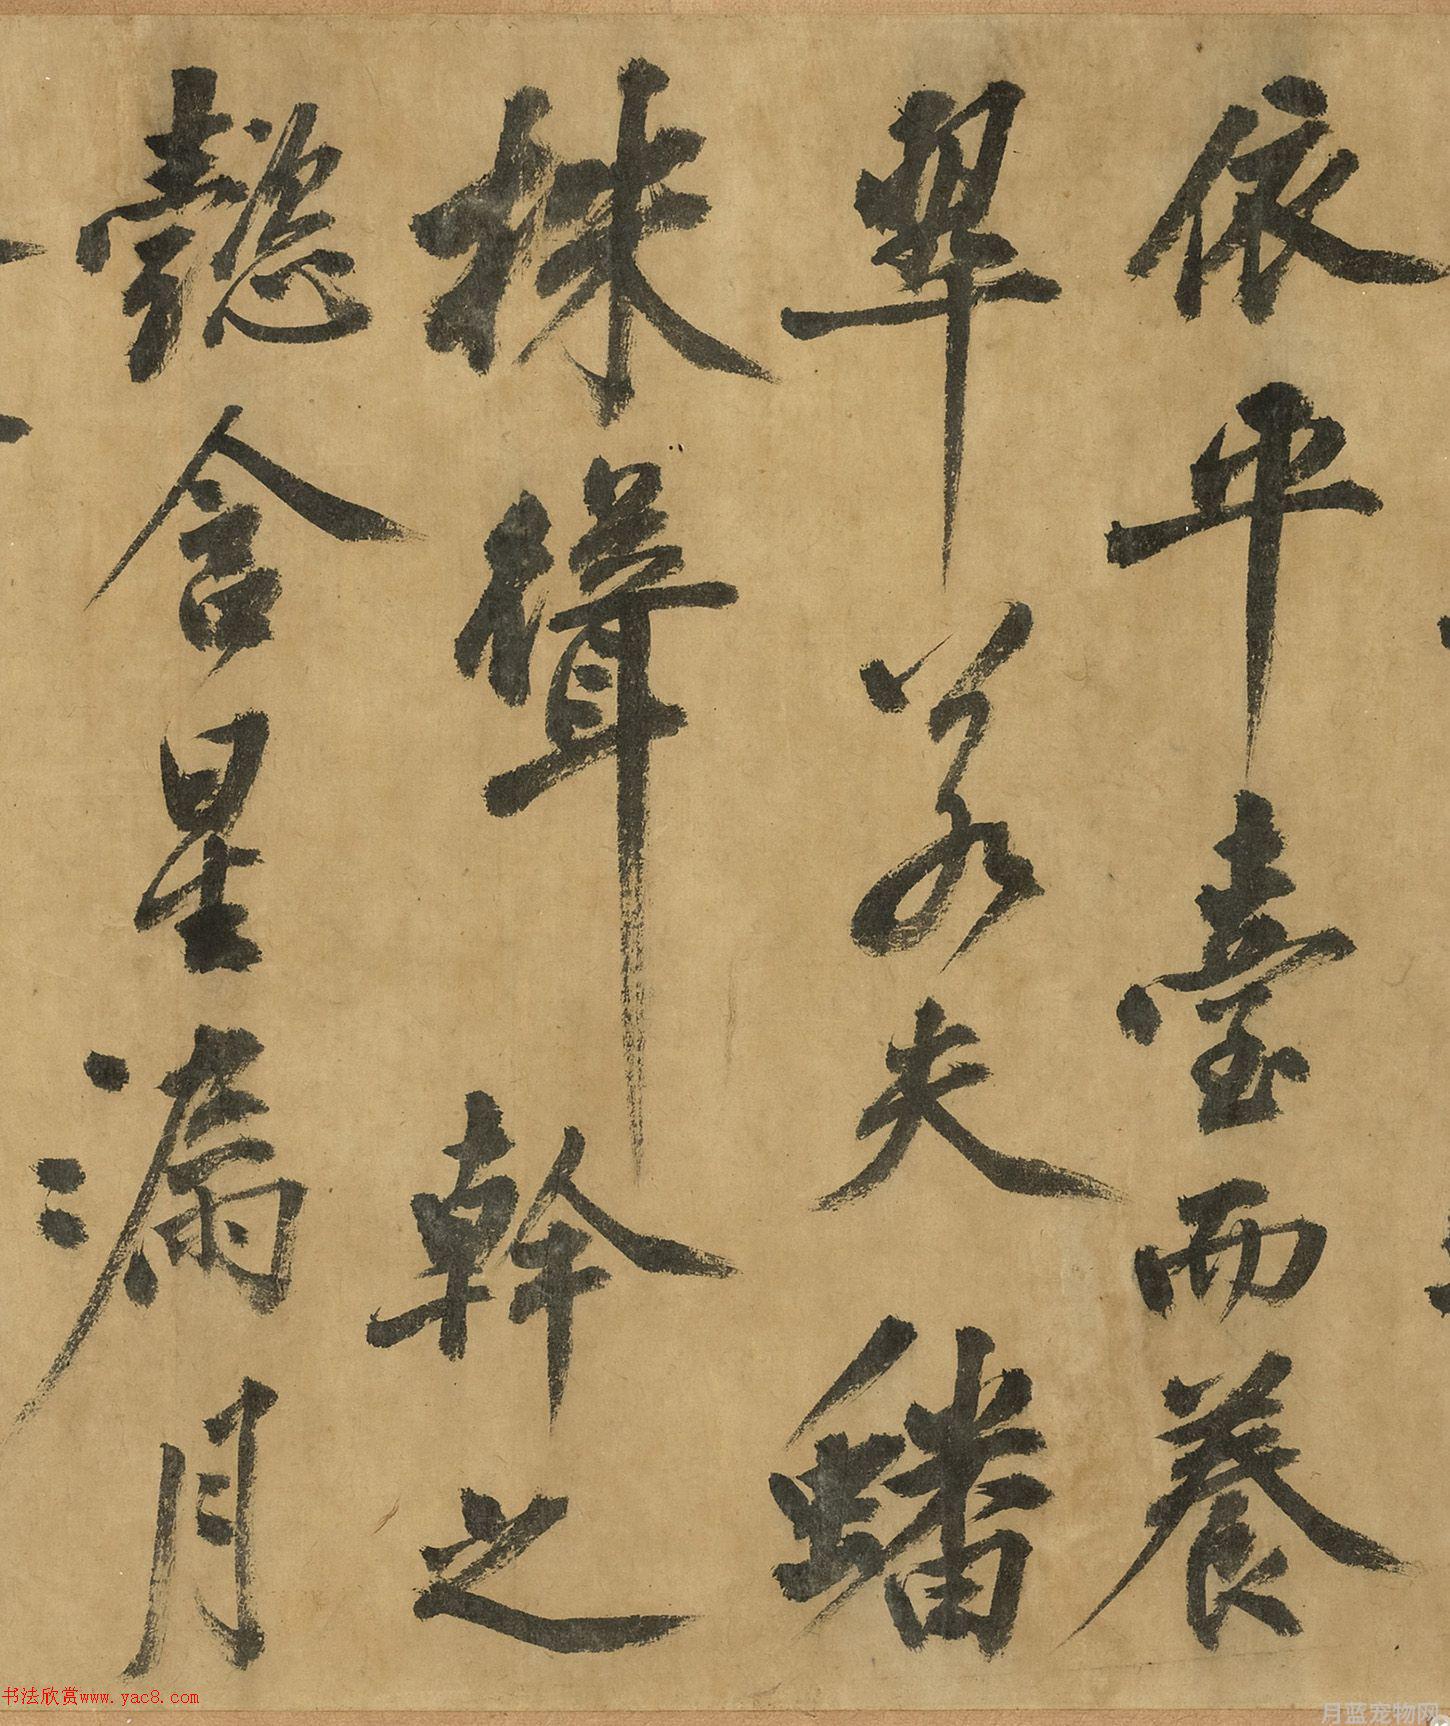 依平臺而養
翠若夫蟠
株聳幹之
懿含星漏月
书法欣赏www.yac8.com
月蓝宠物网